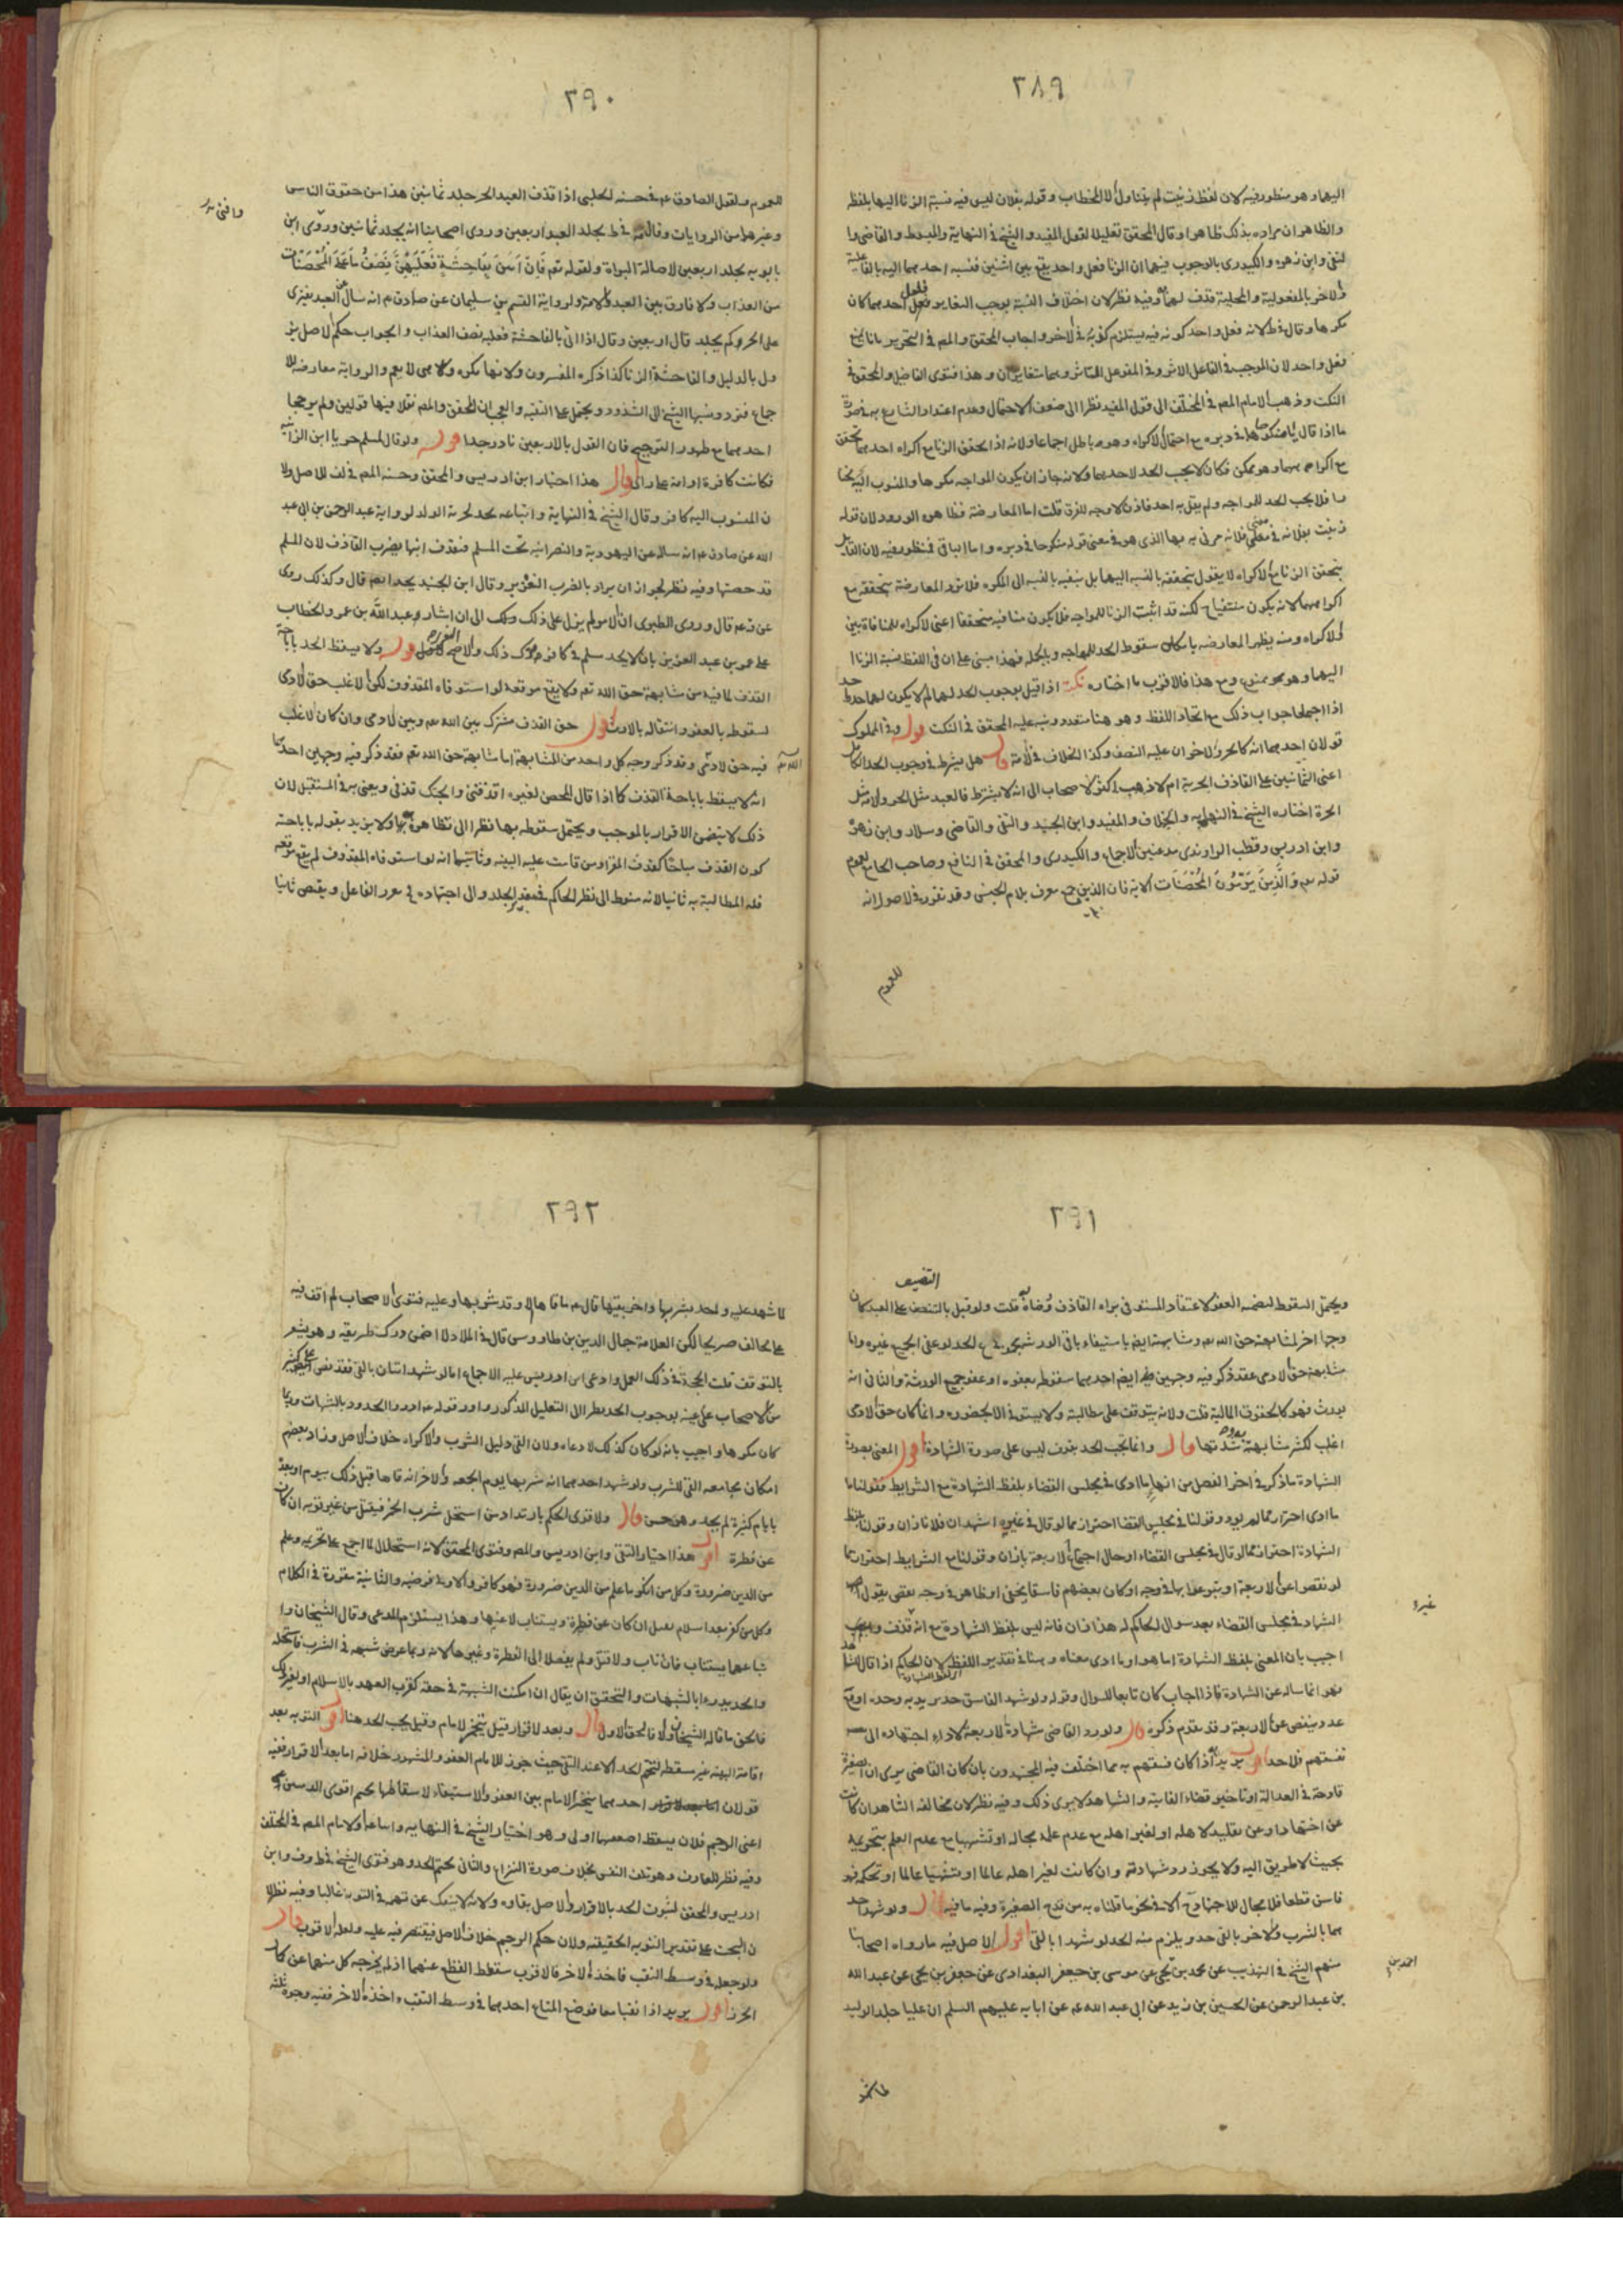 ٢٨٩
اليها وهو منظور فيه لان لفظ زنيت لم يتناول الا المخاطب وقوله بفلان ليس فيه نسبة الزنا اليها بلفظه
والظاهر ان مراده بذلك ظاهرا وقال المحقق تعليلا لقول المفيد والشيخ في النهاية والمبسوط والقاضي وا
لتقي وابن زهره والكيدري بالوجوب فيهما ان الزنا فعل واحد يقع بين اثنين فنسبه احدهما اليه بالفاعلية
والاخر بالمفعولية والمحلية قذف لهما وفيه نظر لان اختلاف النسبة يوجب التغاير احدهما كان
مكرها وقال في ط لانه فعل واحد كونه فيه يستلزم كونه في الاخر واجاب المحقق والمص في التحرير بانا نمنع
فعل واحد لان الموجب في الفاعل الاثر وفي المفوعل التاثر وهما متغايران وهذا فتوى الفاضل والمحقق في
النكت وذهب الامام المص في المختلف الى قول المفيد نظرا الى ضعف الاحتمال وعدم اعتداد الشارع به في صورة
ما اذا قال يا منكوحا في دبره مع احتمال الاكراه وهو باطل اجماعا ولانه اذا تحقق الزنا مع اكراه احدهما تحقق
مع اكراههما وهو ممكن فكان لا يجب الحد لاحدهما ولانه جاز ان يكون المواجه مكرها والمنسوب اليه مختا
را فلا يجب الحد للمواجه ولم يقل به احد فاذن لا وجه للفرق قلت اما المعارضة فظاهره الورود لان قوله
زنيت بفلانه في معنى فلانه مزني بها الذي هو في معنى قوله منكوحا في دبره واما الباقي فمنظور فيه لان القايل
بتحقق الزنا مع الاكراه لا يقول بتحققه بالنسبه اليهما بل ينفيه بالنسبه الى المكره فلا ترد المعارضة بتحققه مع
اكراههما لانه يكون منتفيا لكنه قد اثبت الزنا للمواجه فلا يكون منافيه متحققا اعني الاكراه للمنافاة بين
والاكراه ومنه يظهر المعارضه بامكان سقوط الحد للمواجه وبالجمله فهذا مبني على ان في اللفظ نسبة الزنا ا
اليهما وهو ممنوع ومع هذا فالاقرب ما اختاره نكتة اذا قيل بوجوب الحد لهما لم لا يكون لهما حد واحد
اذا اجتمعا جواب ذلك مع اتحاد اللفظ وهو هنا متعدد ونبه عليه المحقق في النكت قوله وفي المملوك
قولان احدهما انه كالحر والاخر ان عليه النصف وكذا الخلاف في الامة اقول هل يشترط في وجوب الحد الكامل
اعني الثمانين على القاذف الحرية ام لا ذهب اكثر الاصحاب الى انه لا يشترط فالعبد مثل الحر والامة مثل
الحرة اختاره الشيخ في النهايه والخلاف والمفيد وابن الجنيد والتقي والقاضي وسلار وابن زهرة
وابن ادريس وقطب الراوندي مدعين الاجماع والكيدري والمحقق في النافع وصاحب الجامع لعموم
قوله تعم وَالَّذِينَ يَرْمُونَ الْمُحْصَنَاتِ الاية فان الذين جمع معرف بلام الجنس وقد تقرر في الاصول انه
للعموم
٢٩٠
للعموم ولقول الصادق عم في حسنه الحلبي اذا قذف العبد الحر جلد ثمانين هذا من حقوق الناس
وغيرها من الروايات وقال في ط يجلد العبد اربعين وروى اصحابنا انه يجلد ثمانين وروى ابن
بابويه يجلد اربعين لاصالة البراة ولقوله تعم فَاِنْ اَتَيْنَ بِفَاحِشَةٍ فَعَلَيْهِنَّ نِصْفُ مَا عَلَى الْمُحْصَنَاتِ
من العذاب ولا فارق بين العبد والامة ولرواية القسم بن سليمان عن الصادق م انه سال عن العبد يفتري
على الحر وكم يجلد قال اربعين وقال اذا اتى بالفاحشة فعليه نصف العذاب والجواب حكم الاصل يز
ول بالدليل والفاحشة الزنا كذا ذكره المفسرون ولانها نكره وكلاهما لا يعم والرواية معارضة للا
جماع فنرد ونسبها الشيخ الى الشذوذ ويحتمل على التقيه والعجب ان المحقق والمص نقلا فيها قولين ولم يرجحا
احدهما مع ظهور الترجيح فان القول بالاربعين نادر جدا قوله ولو قال لمسلم حر يا ابن الزانية
فكانت كافرة او امة على راي اقول هذا اختيار ابن ادريس والمحقق وحسنه المص في لف للاصل ولا
ن المنسوب اليه كافر وقال الشيخ في النهاية واتباعه يحد لحرمة الولد لرواية عبد الرحمن بن ابي عبد
الله عن صادق عم انه ساله عن اليهودية والنصرانيه تحت المسلم فيقذف ابنها يضرب القاذف لان المسلم
قد حصنها وفيه نظر لجواز ان يراد بالضرب التعزير وقال ابن الجنيد يحد ايضم قال وكذلك روى
عن م عم قال وروى الطبري ان الامر لم يزل على ذلك وملك الى ان اشار عبد الله بن عمر والخطاب
على عمر بن عبد العزيز بان لا يحد مسلم في كافر فترك ذلك والاصح التعزير قوله ولا يسقط الحد باباحة
القذف لما فيه من مشابهة حق الله تعم ولا يقع موقعه لو استوفاه المقذوف لكن الاغلب حق الادمي
لسقوطه بالعفو وانتقاله بالارث اقول حق القذف مشترك بين الله تعم وبين الادمي وان كان الاغلب
فيه حق الادمي وقد ذكر وجه كل واحد من المشابهة اما مشابهة حق الله تعم فقد ذكر فيه وجهين احدهما
انه لا يسقط باباحة القذف كما اذا قال المحصن لغيره اقذفني وابحتك قذفي ويعني به في المستقبل لان
ذلك لا يقتضي الاقرار بالموجب ويحتمل سقوطه بها نظرا الى تظاهره بها ولا يريد بقوله باباحته
كون القذف مباحا كقذف المقر او من قامت عليه البينه وثانيهما انه لو استوفاه المقذوف لم يقع موقعه
فله المطالبة به ثانيا لانه منوط الى نظر الحاكم في الجلد والى اجتهاده في الفاعل ويقتص ثانيا
٢٩١
ويحتمل السقوط لتضمنه العفو لاعتقاد المستوفي براه القاذف ورضاه قلت ولو قيل بالتنصيف على العبد كان
وجها اخر لمشابهته حق الله تعم ومشابهته ايضم باستيفاء باقي الورثة مع الحد لو عفي الجميع غيره واما
مشابهة حق الادمي فقد ذكر فيه وجهين ايضم احدهما سقوطه بعفوه او عفو جميع الورثة والثاني انه
يورث فهو كالحقوق المالية قلت ولانه يتوقف على مطالبة ولا يستوفي الا بحضوره وانما كان حق الادمي
اغلب لكثر مشابهته قال وانما يجب الحد بقذف ليس على صورة الشهادة اقول المعني بصورة
الشهادة ما ذكر في اخر الفصل من انها ما ادى في مجلس القضاء بلفظ الشهادة مع الشرايط فقولنا ما
ما ادى احتراز مما لم يود وقولنا في مجلس القضا احتراز مما لو قال في غيره اشهد ان فلانا زان وقولنا بلفظ
الشهادة احتراز مما لو قال في مجلس القضاء او حال اجتماع الاربعة يا زان وقولنا مع الشرايط احترازا مما
لو نقصوا عن الاربعة او تبرعوا بها في وجه او كان بعضهم فاسقا
الشهاد في مجلس القضاء بعد سوال الحاكم له هذا زان فانه ليس بلفظ الشهادة مع انه قذف
اجيب بان المعني بلفظ الشهادة اما هو او ما ادى معناه وهنا في تقدير اللفظ لان الحاكم اذا قال للشاهد
فهو انما ساله عن الشهادة فاذا اجاب كان تابعا للسوال وقوله ولو شهد الفاسق حد يريد به وحده او مع
عدد ينقص عن الاربعة وقد تقدم ذكره قال ولو رد القاضي شهادة الاربعة لاداء اجتهاده الى
تفسقهم فلا حد اقول يريد اذا كان فسقهم به مما اختلف فيه المجتهدون بان كان القاضي يرى ان الصغيرة
قادحة في العدالة او تاخير قضاء الفايتة والشاهد لا يرى ذلك وفيه نظر لان مخالفه الشاهد ان كانت
عن اجتهاد او عن تقليد لاهله او لغير اهله مع عدم علمه بحاله او تشهيا مع عدم العلم بتحريمه
بحيث لا طريق اليه ولا يجوز رد شهادته وان كانت لغير اهله عالما او تشهيا عالما او تحكمه فهو
فاسق قطعا فلا مجال للاجتهاد الا في نحو ما قلناه به من قدح الصغيرة وفيه ما فيه قال ولو شهد احد
هما بالشرب والاخر بالقي حد ويلزم منه الحد لو شهدا بالقي اقول الاصل فيه ما رواه اصحابنا
منهم الشيخ في التهذيب عن محمد بن يحيى عن موسى بن جعفر البغدادي عن جعفر بن يحيى عن عبد الله
بن عبد الرحمن عن الحسين بن زيد عن ابي عبد الله عم عن ابايه عليهم السلم ان عليا جلد الوليد
لما شهد
٢٩٢
لما شهد عليه واحد بشربها واخر بقيئها قال عم ما قاها الا وقد شربها وعليه فتوى الاصحاب لم اقف فيه
على مخالف صريحا لكن العلامة جمال الدين بن طاووس قال في الملاذ لا اضمن درك طريقه وهو يشعر
بالتوقف قلت الحجة في ذلك العمل وادعى ابن ادريس عليه الاجماع اما لو شهد اثنان بالقي فقد نص كثير
من الاصحاب على عينه بوجوب الحد نظرا الى التعليل المذكور واورد قوله عم ادروا الحدود بالشبهات وربما
كان مكرها واجيب بانه لو كان كذلك لادعاه ولان القي دليل الشرب والاكراه خلاف الاصل وزاد بعضهم
امكان مجامعه القي للشرب ولو شهد احدهما انه شربها يوم الجمعه والاخر انه قاها قبل ذلك بيوم او بعد
بايام كثيرة لم يحد وهو حسن قال والاقوى الحكم بارتداد من استحل شرب الخمر فيقتل من غير توبه ان كان
عن فطرة اقول هذا اختيار التقي وابن ادريس والمص وفتوى المحقق لانه استحلال لما اجمع على تحريمه وعلم
من الدين ضرورة وكل من انكر ما علم من الدين ضرورة فهو كافر والاولى فرضيه والثانية مقررة في الكلام
وكل من كفر بعد اسلام يقتل ان كان عن فطرة ويستتاب لا عنها وهذا يستلزم المدعى وقال الشيخان وا
تباعهما يستتاب فان تاب والا قتل ولم يفصلا الى الفطرة وغيرها لانه ربما عرض شبهه في الشرب فاستحله
والحد يدرء بالشبهات والتحقيق ان يقال ان امكنت الشبهة في حقه كقرب العهد بالاسلام او لغير ذلك
فالحق ما قاله الشيخان والا فالحق الاول قال وبعد الاقرار قيل يتخير الامام وقيل يجب الحد هنا اقول التوبه بعد
اقامة البينه غير مسقطه لتحتم الحد الا عند التقي حيث جوز للامام العفو والمشهور خلافه اما بعد الاقرار ففيه
قولان احدهما يتخير الامام بين العفو والاستيفاء لاسقاطها تحتم اقوى الحدين
اعني الرجم فلان يسقط اضعفهما اولى وهو اختيار الشيخ في النهايه واتباعه والامام المص في المختلف
وفيه نظر للفارق وهو تلف النفس بخلاف صورة النزاع والثاني تحتم الحد وهو فتوى الشيخ في ط وف وابن
ادريس والمحقق لثبوت الحد بالاقرار والاصل بقاوه ولانه لا ينفك عن تهمه في التوبه غالبا وفيه نظر لا
ن البحث على تقدير التوبه الحقيقيه ولان حكم الرجم خلاف الاصل فيقتصر فيه عليه ولعله الاقرب قال
ولو جعله في وسط النقب فاخذه الاخر فالاقرب سقوط القطع عنهما اذ لم يخرجه كل منهما عن كمال
الحرز اقول يريد اذا نقبا معا فوضع المتاع احدهما في وسط النقب واخذه الاخر ففيه وجوه ثلثة